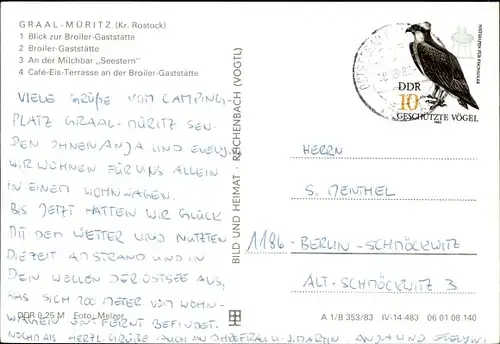 GRAAL-MÜRITZ (Kr. Rostock)
1 Blick zur Broiler-Gaststätte
2 Broiler-Gaststätte
3 An der Milchbar „Seestern"
4 Café-Eis-Terrasse an der Broiler-Gaststätte
VIELE GRÜßE VOM CAMPING-
PLATZ GRAAL-MÜRITZ SEN-
DEN IHNEN ANJA UND EVELYN.
WIR WOHNEN FÜR UNS ALLEIN
IN EINEM WOHNWAGEN.
BIS JETZT HATTEN WIR GLÜCK
MIT DEM WETTER UND NUTZTEN
DIE ZEIT AM STRAND UND IN
DEN WELLEN DER OSTSEE AUS,
WAS SICH 200 METER VOM WOHN-
WAGEN ENTFERNT BEFINDET.
NOCHMALS HERZL. GRÜßE AUCH AN IHRE FRAU U. J. MARTIN. ANJA UND EVELYN
DDR 0,25 M Foto: Melzer
BILD UND HEIMAT · REICHENBACH (VOGTL)
DDR
10
GESCHÜTZTE VÖGEL
1982
HERRN
S. MENTHEL
1186-BERLIN-SCHMÖCKWITZ
ALT-SCHMÖCKWITZ 3
A 1/B 353/83 IV-14-483 06 01 08 140